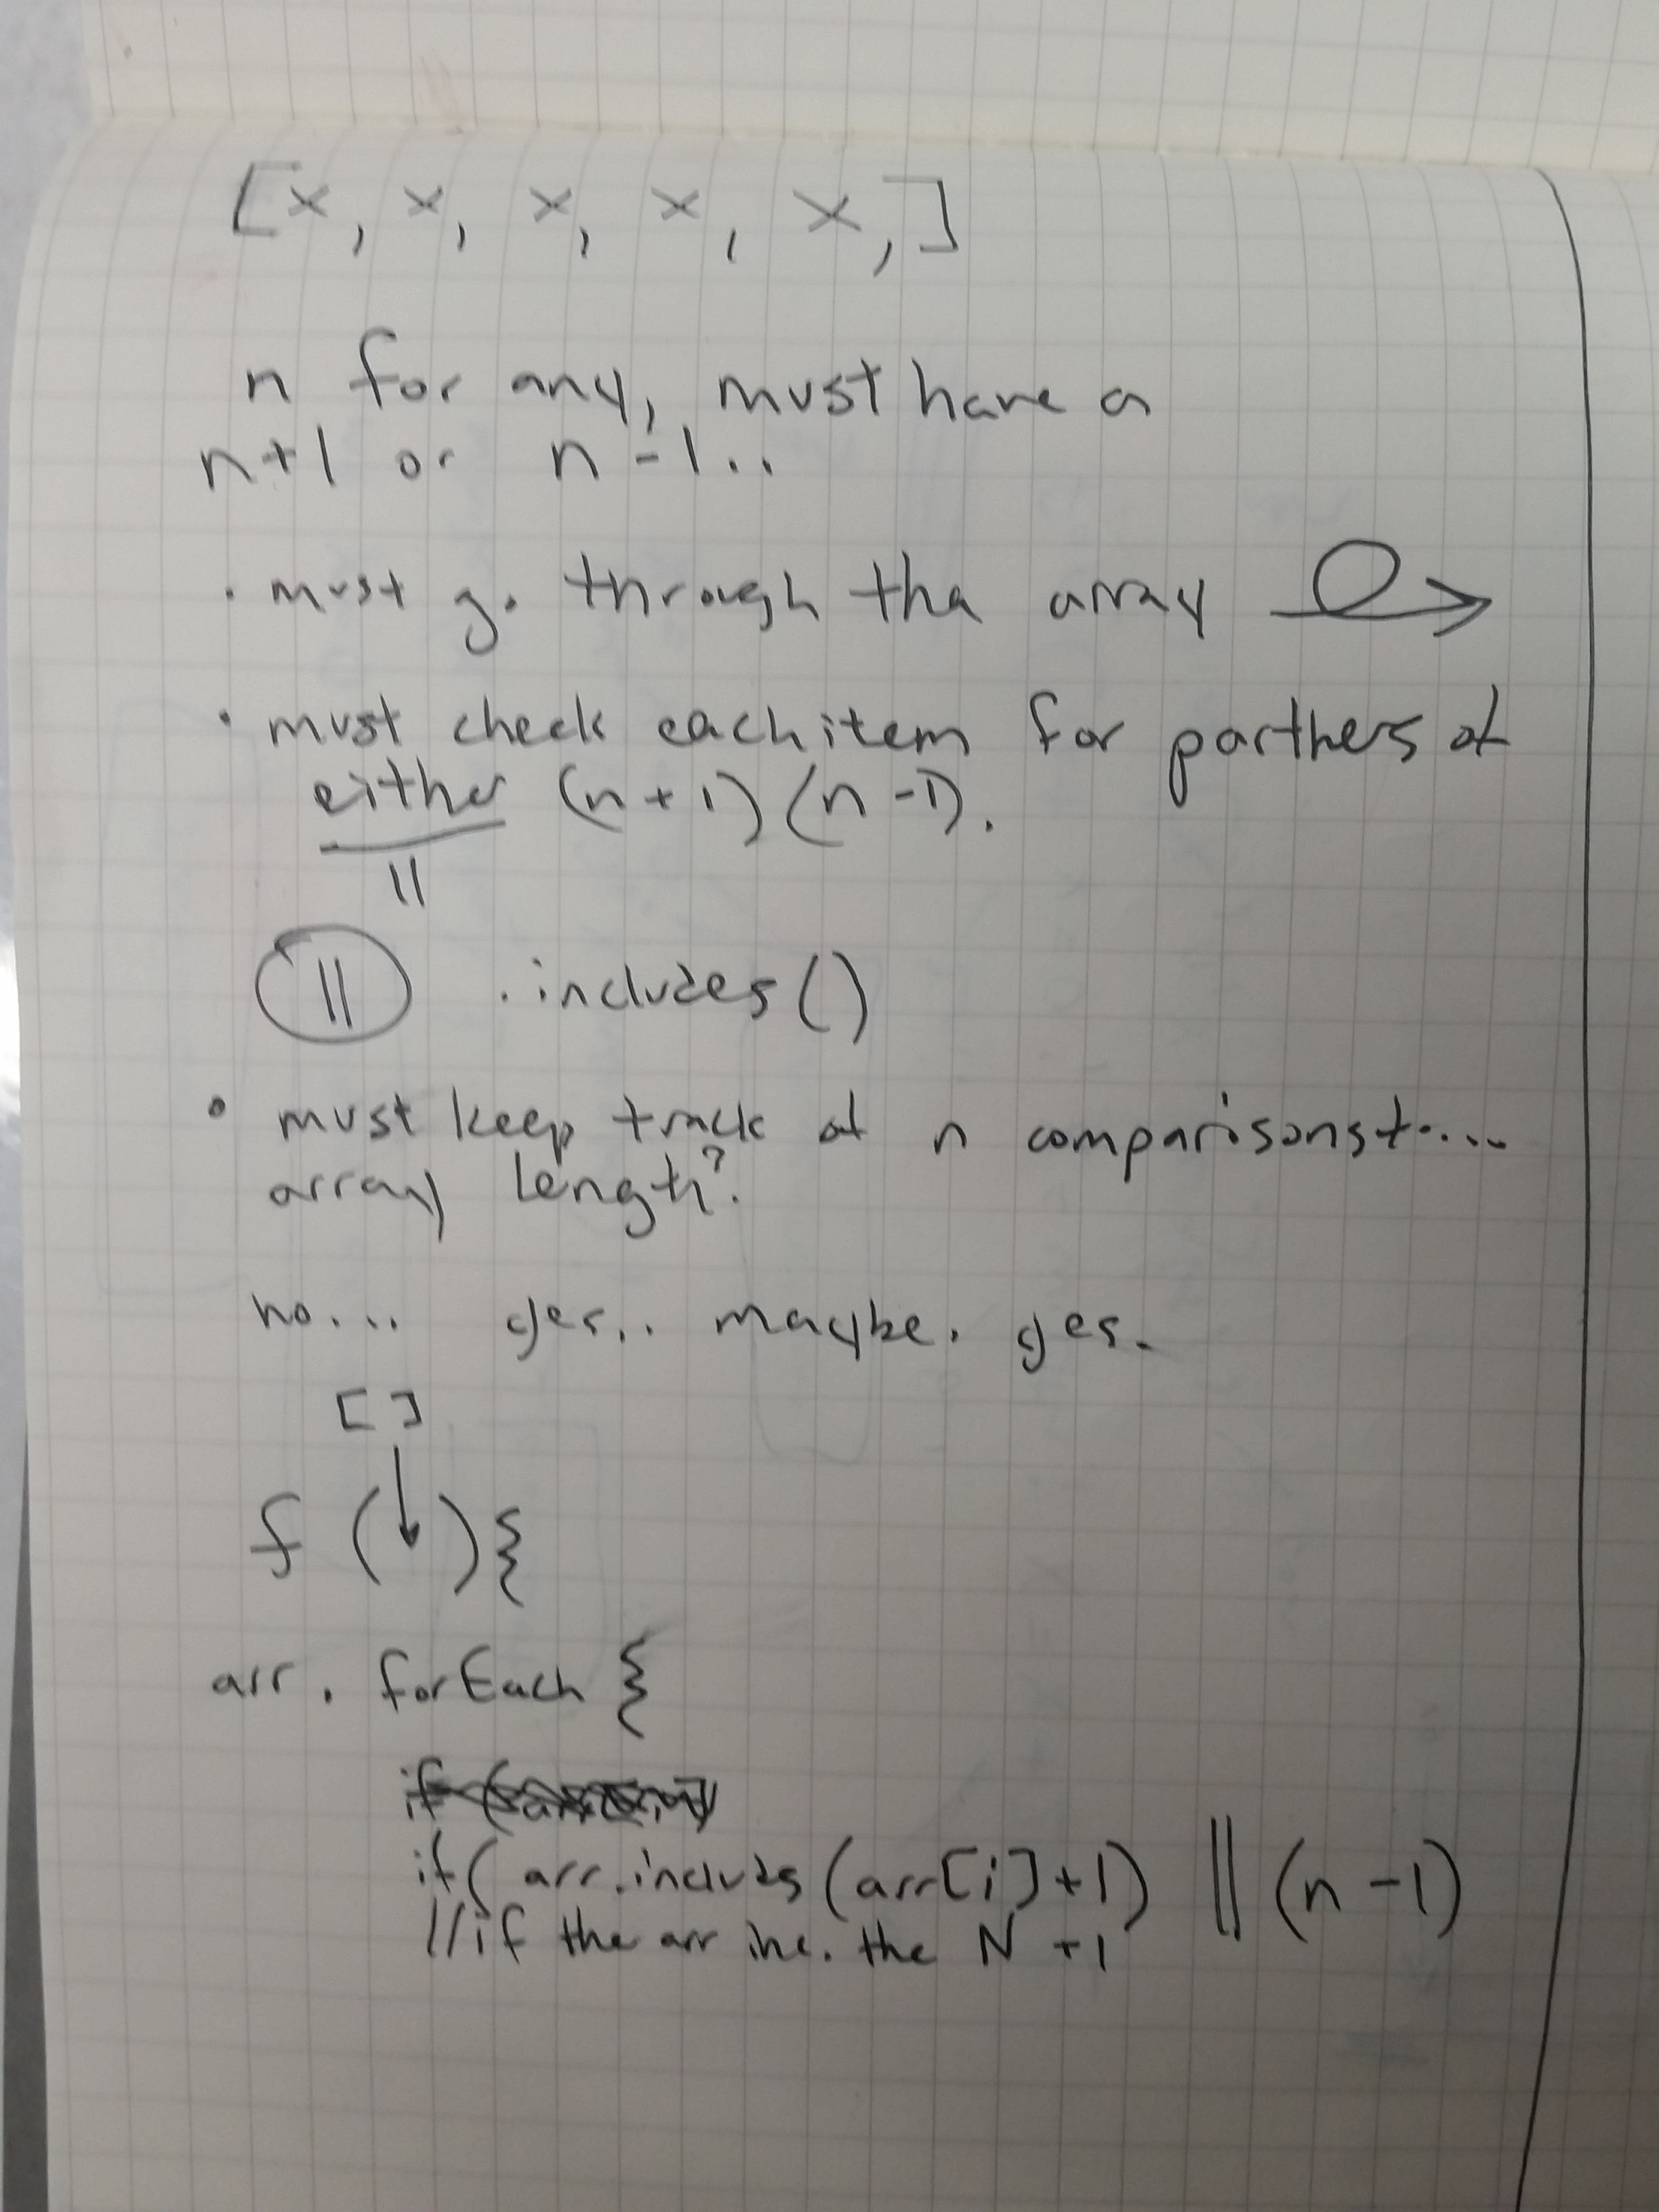 [x, x, x, x, x,]
n for any, must have a
n+1 or n-1..
· must go through tha array
· must check each item for partners of
either (n+1)(n-1).
||
|| .includes()
· must keep track of n comparisons t....
array length?
no... yes.. maybe. yes.
[]
f ( ){
arr. forEach {
if(arr.includes(arr[i]+1) || (n-1)
//if the arr inc. the N +1